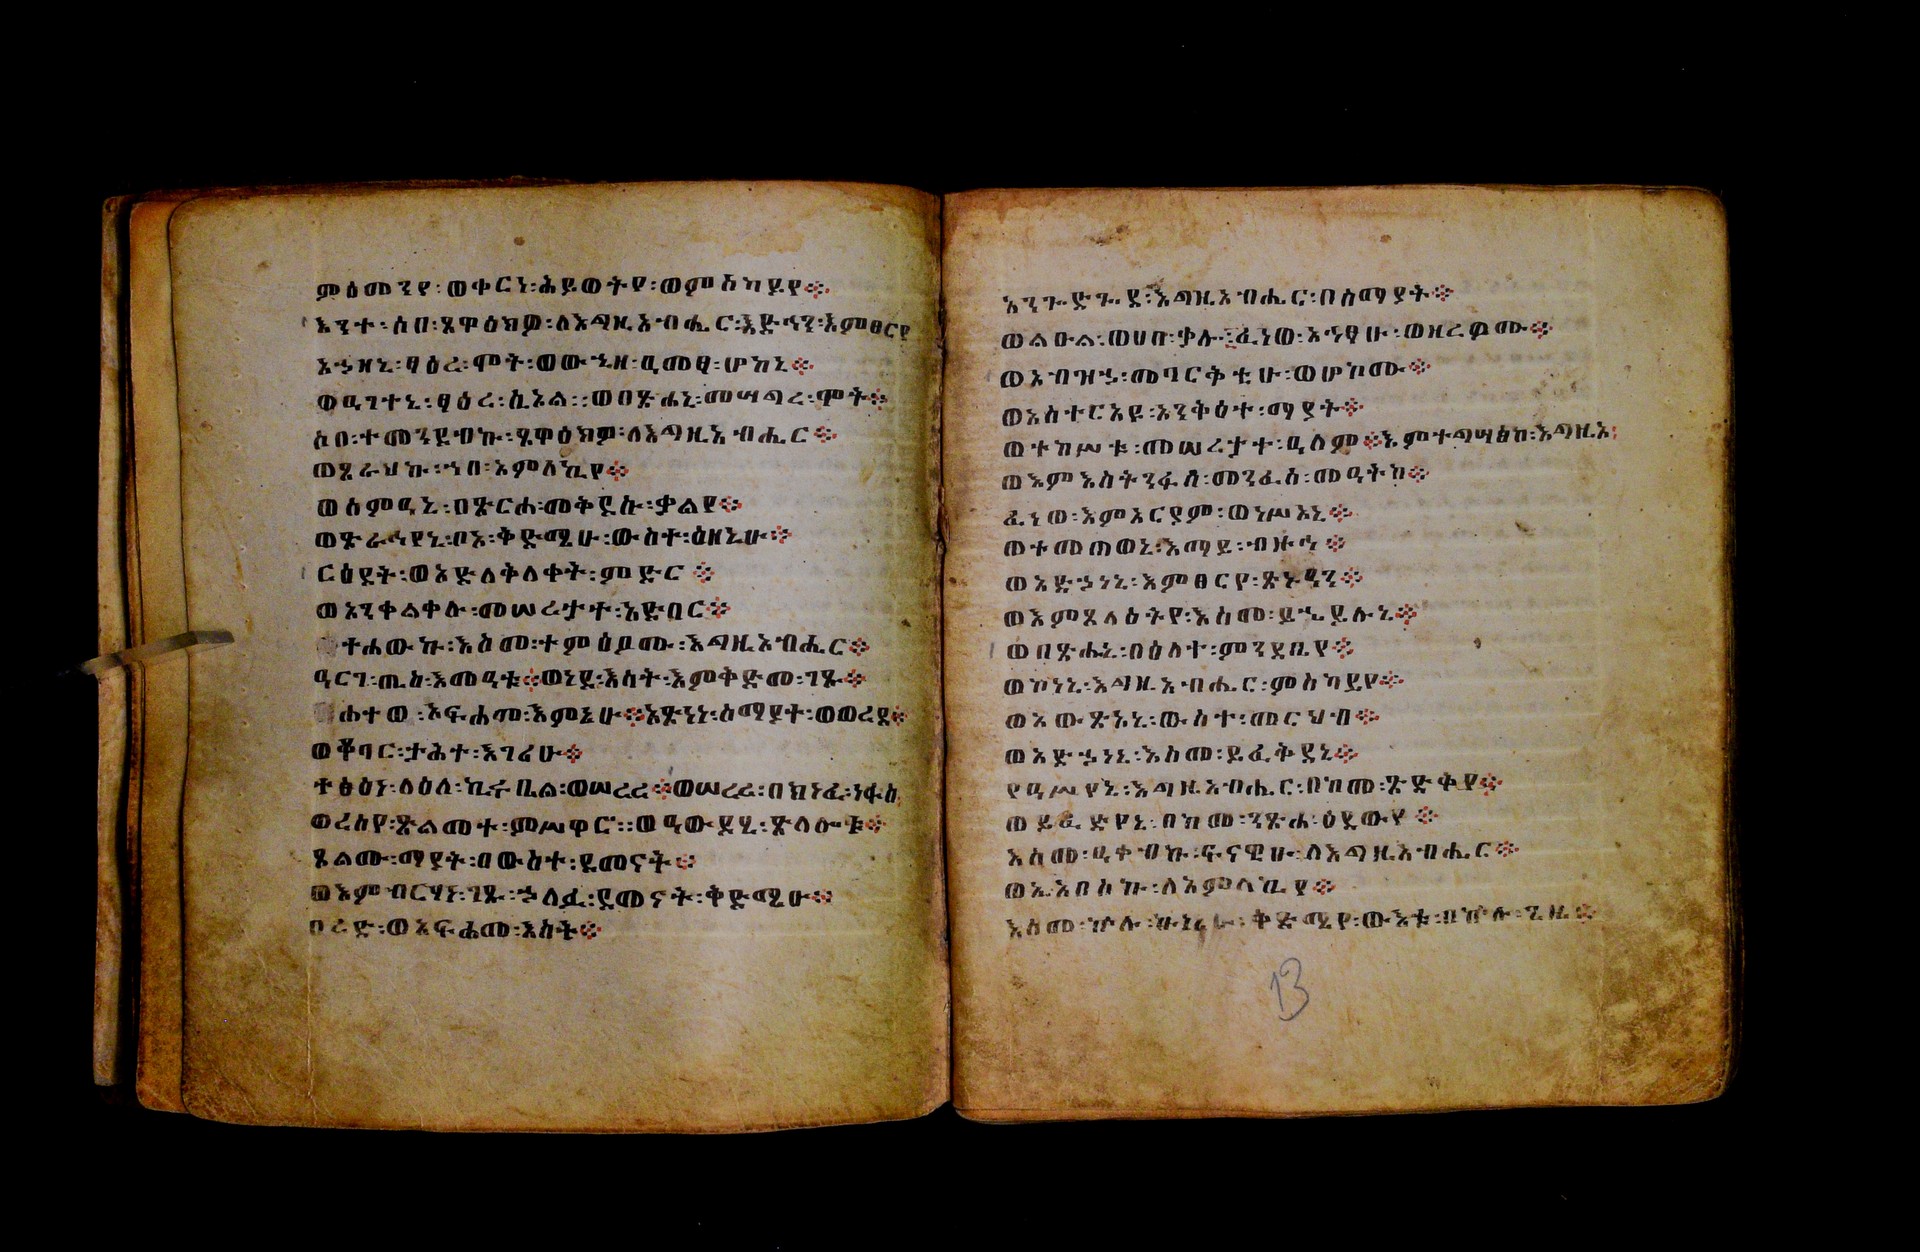 ምዕመንየ፡ወቀርነ፡ሕይወትየ፡ወምስካይየ፨
እንተ፡ሶበ፡ጸዋዕክዎ፡ለእግዚአብሔር፡እድኅን፡እምፀርየ
አኃዘኒ፡ፃዕረ፡ሞት፡ወውኂዘ፡ዓመፃ፡ሆከኒ፨
ወዓገተኒ፡ፃዕረ፡ሲኦል፡፡ወበጽሐኒ፡መሣግረ፡ሞት፨
ሶበ፡ተመንደብኩ፡ጸዋዕክዎ፡ለእግዚአብሔር፨
ወጸራህኩ፡ኀበ፡አምላኪየ፨
ወሰምዓኒ፡በጽርሐ፡መቅደሱ፡ቃልየ፨
ወጽራኅየኒ፡ቦአ፡ቅድሜሁ፡ውስተ፡ዕዘኒሁ፨
ርዕደት፡ወአድለቅለቀት፡ምድር፨
ወአንቀልቀሉ፡መሠረታት፡አድበር፨
ተሐውኩ፡እስመ፡ተምዕዖሙ፡እግዚአብሔር፨
ዓርገ፡ጢሰ፡እመዓቱ፨ወነደ፡እሳት፡እምቅድመ፡ገጹ፨
ሐተወ፡አፍሐመ፡እምኔሁ፨አጽነነ፡ሰማያት፡ወወረደ፨
ወቆባር፡ታሕተ፡እገሪሁ፨
ተፅዕነ፡ላዕለ፡ኪሩቤል፡ወሠረረ፨ወሠረረ፡በክነፈ፡ነፋስ
ወረሰየ፡ጽልመተ፡ምሥዋር፡፡ወዓውደሂ፡ጽላሎቱ፨
ጸልሙ፡ማያት፡በውስተ፡ደመናት፨
ወእምብርሃነ፡ገጹ፡ኃለፈ፡ደመናት፡ቅድሜሁ፨
በረድ፡ወአፍሐመ፡እሳት፨
አንጐድጐደ፡እግዚአብሔር፡በሰማያት፨
ወልዑል፡ወሀበ፡ቃሉ፨ፈነወ፡አኅፃሁ፡ወዘረዎሙ፨
ወአብዝኃ፡መባርቅቲሁ፡ወሆኮሙ፨
ወአስተርአዩ፡አንቅዕተ፡ማያት፨
ወተከሥቱ፡መሠረታተ፡ዓለም፨እምተግሣፅከ፡እግዚኦ፡
ወእምእስትንፋሰ፡መንፈሰ፡መዓትከ፨
ፈነወ፡እምአርያም፡ወነሥአኒ፨
ወተመጠወኒ፡እማይ፡ብዙኅ፨
ወአድኃነኒ፡እምፀርየ፡ጽኑዓን፨
ወእምጸላዕትየ፡እስመ፡ይኄይሉኒ፨
ወበጽሑኒ፡በዕለተ፡ምንዳቤየ፨
ወኮነኒ፡እግዚአብሔር፡ምስካይየ፨
ወአውጽአኒ፡ውስተ፡መርህብ፨
ወአድኃነኒ፡እስመ፡ይፈቅደኒ፨
የዓሥየኒ፡እግዚአብሔር፡በከመ፡ጽድቅየ፨
ወይፈድየኒ፡በከመ፡ንጽሐ፡ዕደውየ፨
እስመ፡ዓቀብኩ፡ፍናዊሁ፡ለእግዚአብሔር፨
ወኢአበስኩ፡ለአምላኪየ፨
እስመ፡ኵሉ፡ኵነኔሁ፡ቅድሜየ፡ውእቱ፡በኵሉ፡ጊዜ፨
13